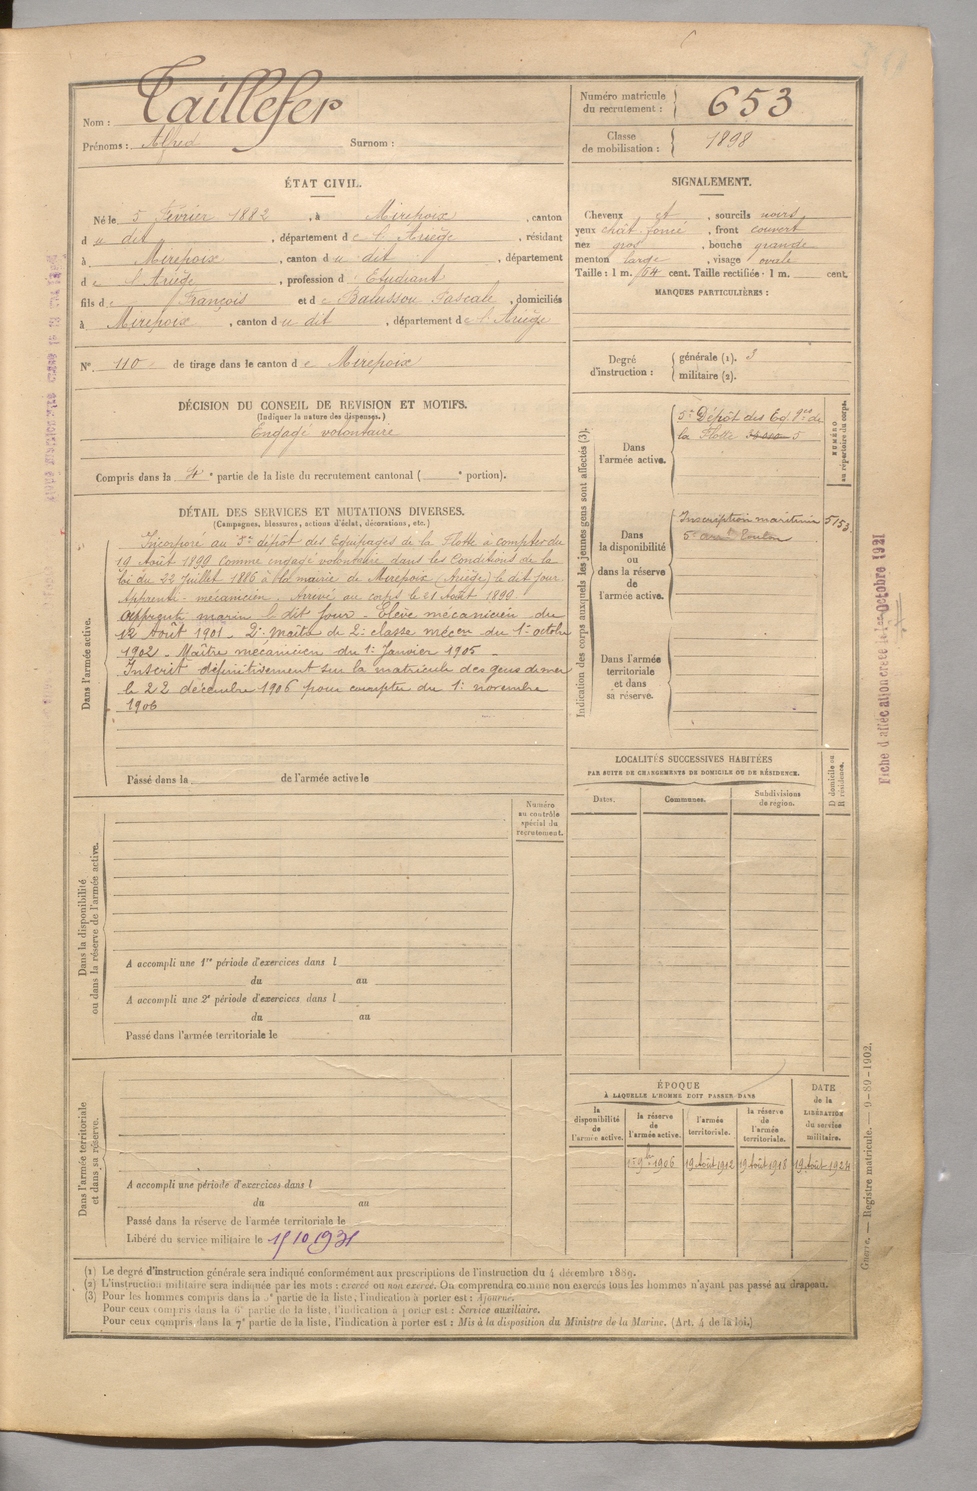 Nom : Taillefer
Prénoms : Alfred Surnom :
Numéro matricule du recrutement : 653
Classe de mobilisation : 1898
ÉTAT CIVIL.
Né le 5 Février 1882, à Mirepoix, canton
du dit, département de l'Ariège, résidant
à Mirepoix, canton du dit, département
de l'Ariège, profession d'Etudiant
fils de François et de Balussou Pascale, domiciliés
à Mirepoix, canton du dit, département de l'Ariège
N°. 110 de tirage dans le canton de Mirepoix
SIGNALEMENT.
Cheveux et, sourcils noirs
yeux chât. foncé, front couvert
nez gros, bouche grande
menton large, visage ovale
Taille : 1 m. 64 cent. Taille rectifiée : 1 m. cent.
MARQUES PARTICULIÈRES :
Degré d'instruction : générale (1). 3
militaire (2).
DÉCISION DU CONSEIL DE REVISION ET MOTIFS.
(Indiquer la nature des dispenses.)
Engagé volontaire
Compris dans la 4e partie de la liste du recrutement cantonal ( e portion).
DÉTAIL DES SERVICES ET MUTATIONS DIVERSES.
(Campagnes, blessures, actions d'éclat, décorations, etc.)
Dans l'armée active.
Incorporé au 5e dépôt des Equipages de la Flotte à compter du
19 Août 1899 Comme engagé volontaire dans les Conditions de la
loi du 22 Juillet 1886 à la mairie de Mirepoix (Ariège) le dit jour
Apprenti-mécanicien. Arrivé au corps le 21 Août 1899
Apprenti marin le dit jour - Elève mécanicien du
12 Août 1901 - De Maître de 2e classe mécen du 1er octobre
1902 - Maître mécanicien du 1er Janvier 1905 -
Inscrit définitivement sur la matricule des gens de mer
le 22 décembre 1906 pour compter du 1er novembre
1906
Passé dans la de l'armée active le
Indication des corps auxquels les jeunes gens sont affectés (3).
NUMÉRO au répertoire du corps.
Dans l'armée active.
5e Dépôt des Eq. ges de
la Flotte 5
Dans la disponibilité ou dans la réserve de l'armée active.
Inscription maritime 5153
5e arrt Toulon
Dans l'armée territoriale et dans sa réserve.
Fiche d'affectation créée le 1er Octobre 1921
LOCALITÉS SUCCESSIVES HABITÉES
PAR SUITE DE CHANGEMENTS DE DOMICILE OU DE RÉSIDENCE.
Dates. Communes. Subdivisions de région. D domicile ou R résidence.
Dans la disponibilité ou dans la réserve de l'armée active.
Numéro au contrôle spécial du recrutement.
A accompli une 1re période d'exercices dans l
du au
A accompli une 2e période d'exercices dans l
du au
Passé dans l'armée territoriale le
Dans l'armée territoriale et dans sa réserve.
A accompli une période d'exercices dans l
du au
Passé dans la réserve de l'armée territoriale le
Libéré du service militaire le 15/10/931
ÉPOQUE
À LAQUELLE L'HOMME DOIT PASSER DANS
la disponibilité de l'armée active.
la réserve de l'armée active.
l'armée territoriale.
la réserve de l'armée territoriale.
DATE de la LIBÉRATION du service militaire.
1er 9bre 1906 19 Août 1912 19 Août 1918 19 Août 1924
Guerre. — Registre matricule. — 9-89-1902.
(1) Le degré d'instruction générale sera indiqué conformément aux prescriptions de l'instruction du 4 décembre 1889.
(2) L'instruction militaire sera indiquée par les mots : exercé ou non exercé. On comprendra comme non exercés tous les hommes n'ayant pas passé au drapeau.
(3) Pour les hommes compris dans la 5e partie de la liste, l'indication à porter est : Ajourné.
Pour ceux compris dans la 6e partie de la liste, l'indication à porter est : Service auxiliaire.
Pour ceux compris dans la 7e partie de la liste, l'indication à porter est : Mis à la disposition du Ministre de la Marine. (Art. 4 de la loi.)